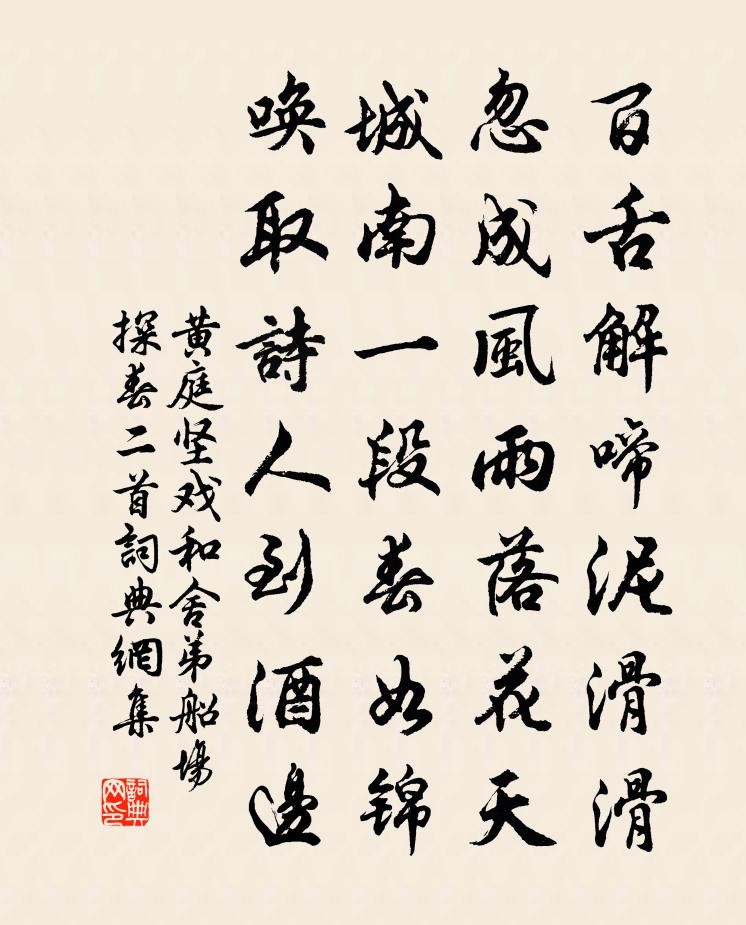 百舌解啼泥滑滑
忽成風雨落花天
城南一段春如锦
喚取詩人到酒邊
黄庭坚戏和舍弟船場
探春二首詞典網集
詞典网印